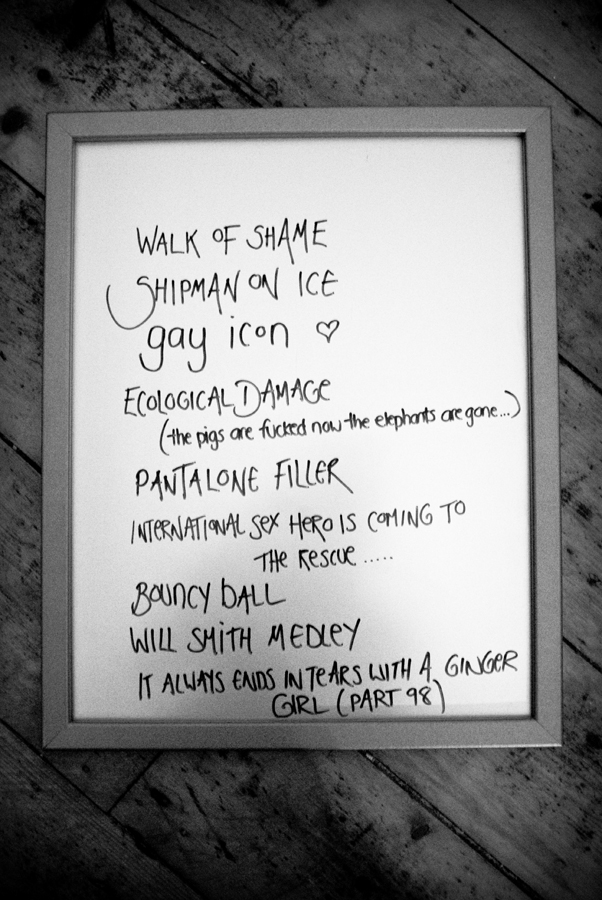 WALK OF SHAME
SHIPMAN ON ICE
gay icon ♡
ECOLOGICAL DAMAGE
(the pigs are fucked now the elephants are gone...)
PANTALONE FILLER
INTERNATIONAL SEX HERO IS COMING TO
THE RESCUE .....
BOUNCY BALL
WILL SMITH MEDLEY
IT ALWAYS ENDS IN TEARS WITH A GINGER
GIRL (PART 98)